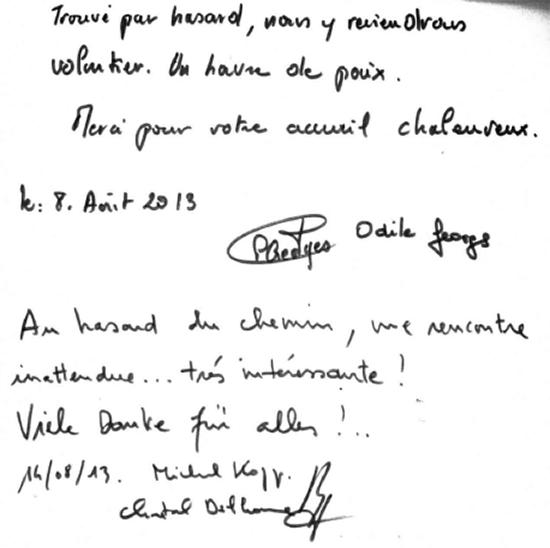 Trouvé par hasard, nous y reviendrons
volontier. Un havre de paix.
Merci pour votre accueil chaleureux.
le: 8. Août 2013
Odile Georges
Au hasard du chemin, une rencontre
inattendue... très intéressante !
Viele Danke für alles !..
14/08/13. Michel Kopp.
Chantal